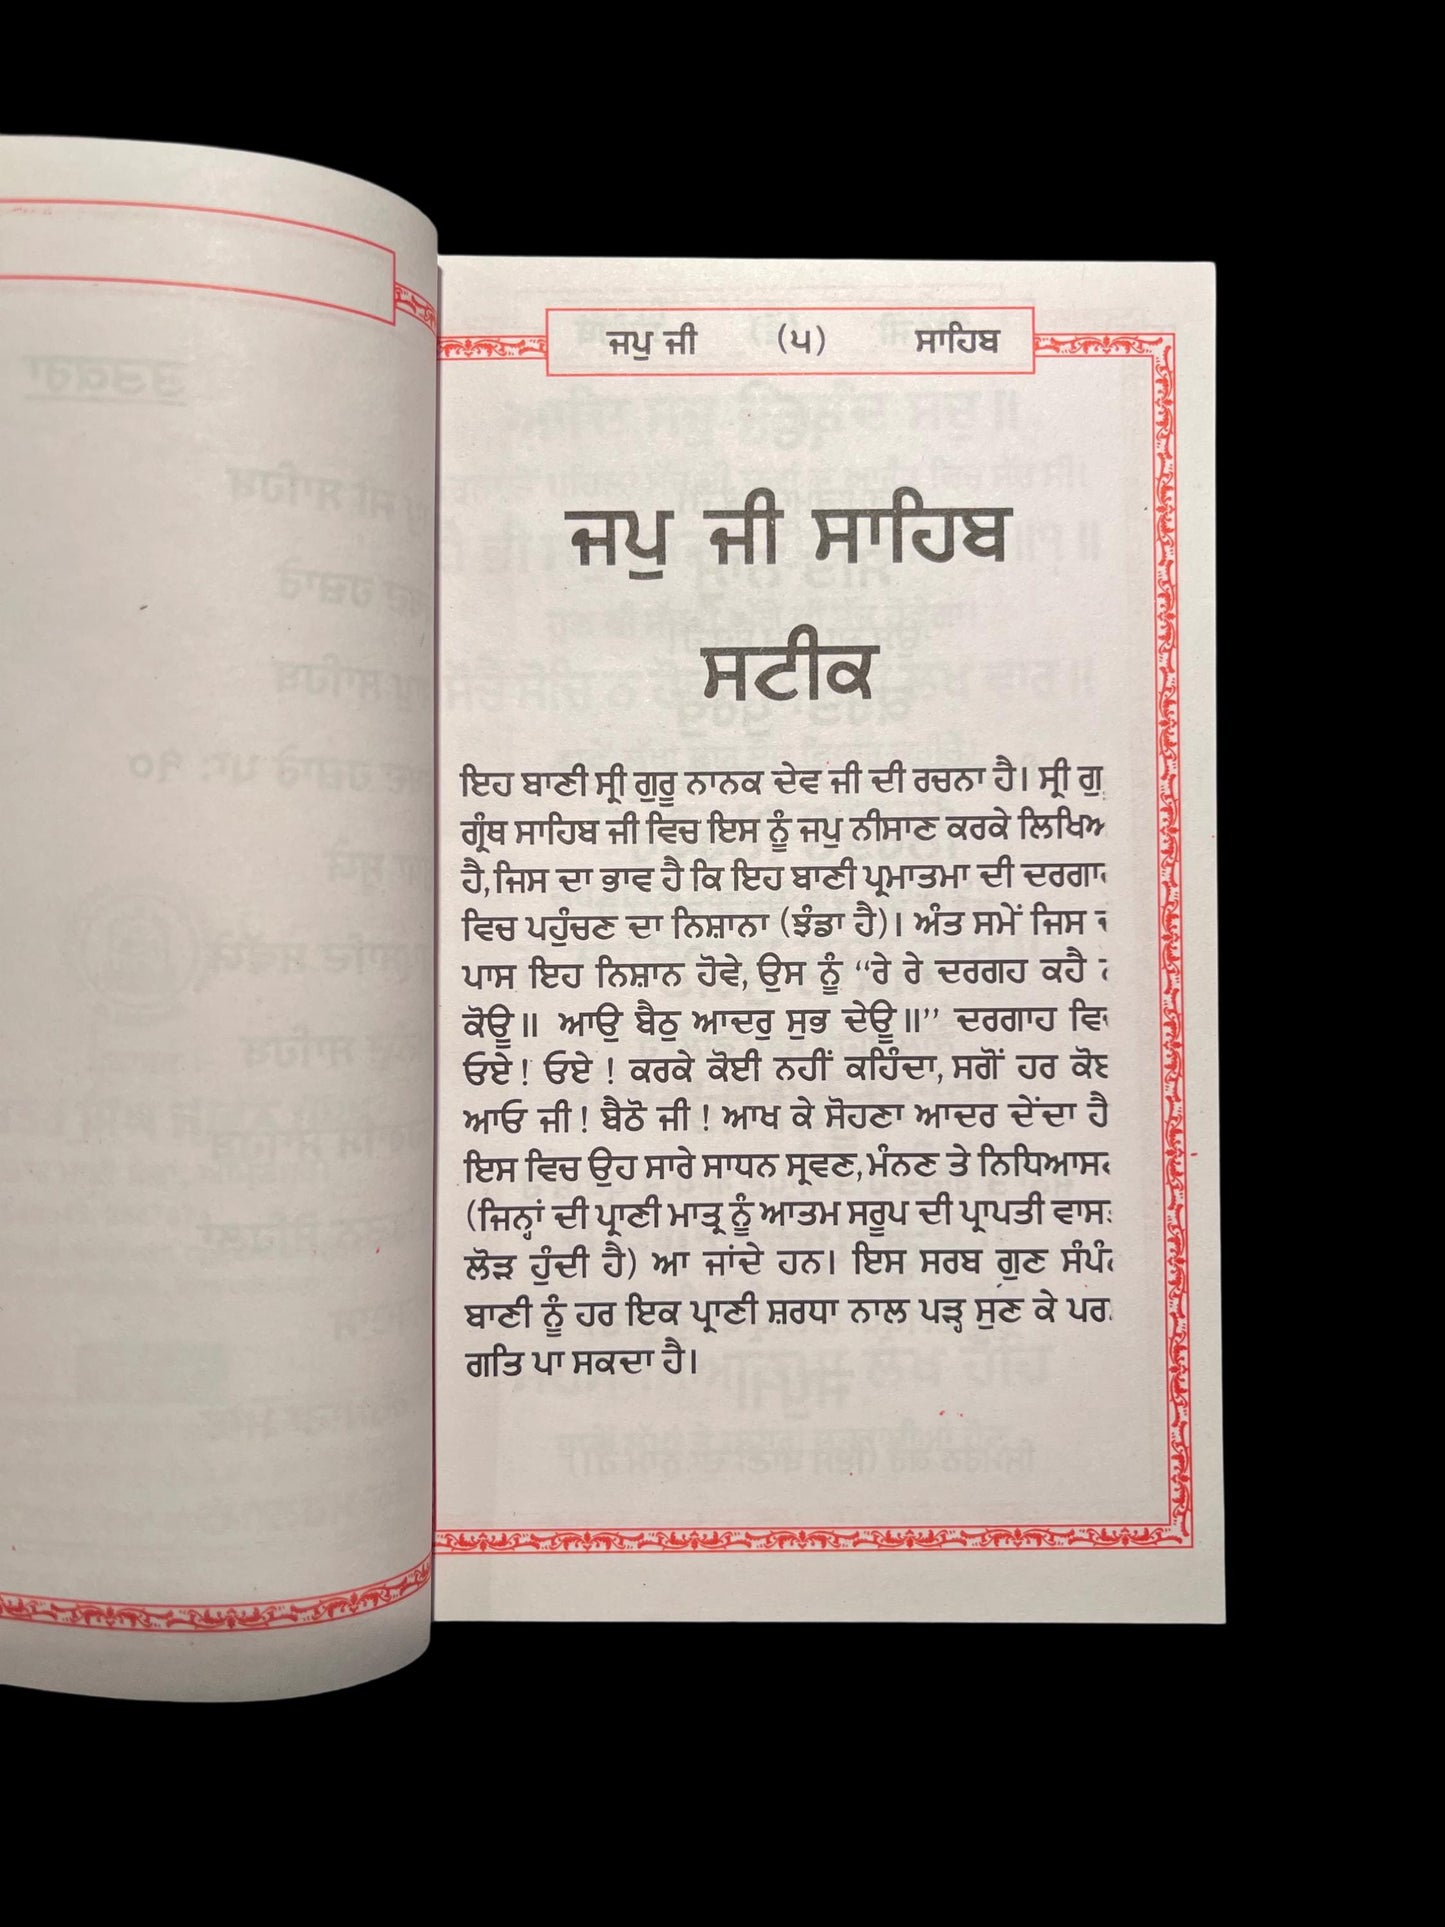 ਜਪੁ ਜੀ (੫) ਸਾਹਿਬ
ਜਪੁ ਜੀ ਸਾਹਿਬ
ਸਟੀਕ
ਇਹ ਬਾਣੀ ਸ੍ਰੀ ਗੁਰੂ ਨਾਨਕ ਦੇਵ ਜੀ ਦੀ ਰਚਨਾ ਹੈ। ਸ੍ਰੀ ਗੁ
ਗ੍ਰੰਥ ਸਾਹਿਬ ਜੀ ਵਿਚ ਇਸ ਨੂੰ ਜਪੁ ਨੀਸਾਣ ਕਰਕੇ ਲਿਖਿਅ
ਹੈ,ਜਿਸ ਦਾ ਭਾਵ ਹੈ ਕਿ ਇਹ ਬਾਣੀ ਪ੍ਰਮਾਤਮਾ ਦੀ ਦਰਗਾ
ਵਿਚ ਪਹੁੰਚਣ ਦਾ ਨਿਸ਼ਾਨਾ (ਝੰਡਾ ਹੈ)। ਅੰਤ ਸਮੇਂ ਜਿਸ
ਪਾਸ ਇਹ ਨਿਸ਼ਾਨ ਹੋਵੇ, ਉਸ ਨੂੰ “ਰੇ ਰੇ ਦਰਗਹ ਕਹੈ
ਕੋਊ॥ ਆਉ ਬੈਠੁ ਆਦਰੁ ਸੁਭ ਦੇਊ॥” ਦਰਗਾਹ ਵਿ
ਓਏ! ਓਏ ! ਕਰਕੇ ਕੋਈ ਨਹੀਂ ਕਹਿੰਦਾ, ਸਗੋਂ ਹਰ ਕੋ
ਆਓ ਜੀ! ਬੈਠੋ ਜੀ ! ਆਖ ਕੇ ਸੋਹਣਾ ਆਦਰ ਦੇਂਦਾ ਹੈ
ਇਸ ਵਿਚ ਉਹ ਸਾਰੇ ਸਾਧਨ ਸ੍ਰਵਣ,ਮੰਨਣ ਤੇ ਨਿਧਿਆਸ
(ਜਿਨ੍ਹਾਂ ਦੀ ਪ੍ਰਾਣੀ ਮਾਤ੍ਰ ਨੂੰ ਆਤਮ ਸਰੂਪ ਦੀ ਪ੍ਰਾਪਤੀ ਵਾਸ
ਲੋੜ ਹੁੰਦੀ ਹੈ) ਆ ਜਾਂਦੇ ਹਨ। ਇਸ ਸਰਬ ਗੁਣ ਸੰਪੰ
ਬਾਣੀ ਨੂੰ ਹਰ ਇਕ ਪ੍ਰਾਣੀ ਸ਼ਰਧਾ ਨਾਲ ਪੜ੍ਹ ਸੁਣ ਕੇ ਪਰ
ਗਤਿ ਪਾ ਸਕਦਾ ਹੈ।